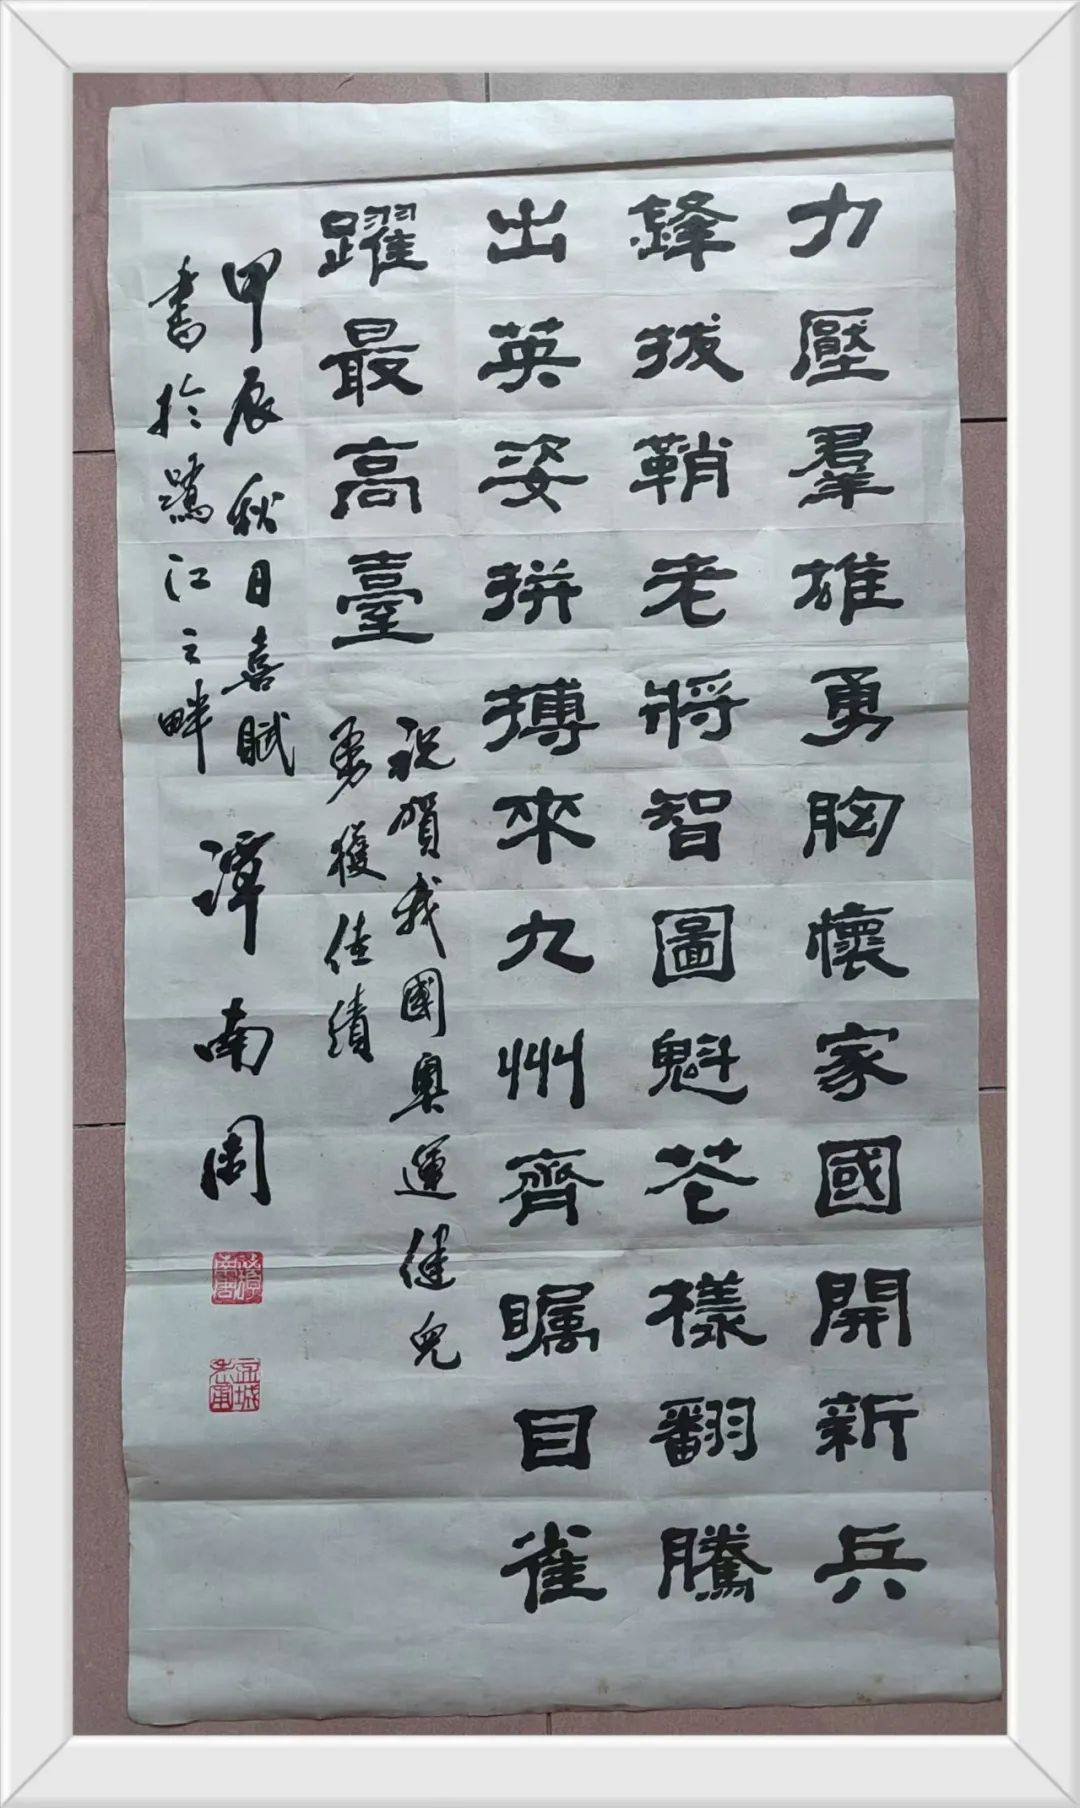 力壓羣雄勇胸懷家國開新兵
鋒拔鞘老將智圖魁芒樣翻騰
出英姿拼搏來九州齊矚目雀
躍最高臺
祝賀我國奧運健兒
勇獲佳績
甲辰秋日喜賦
書於鷺江之畔
譚南周